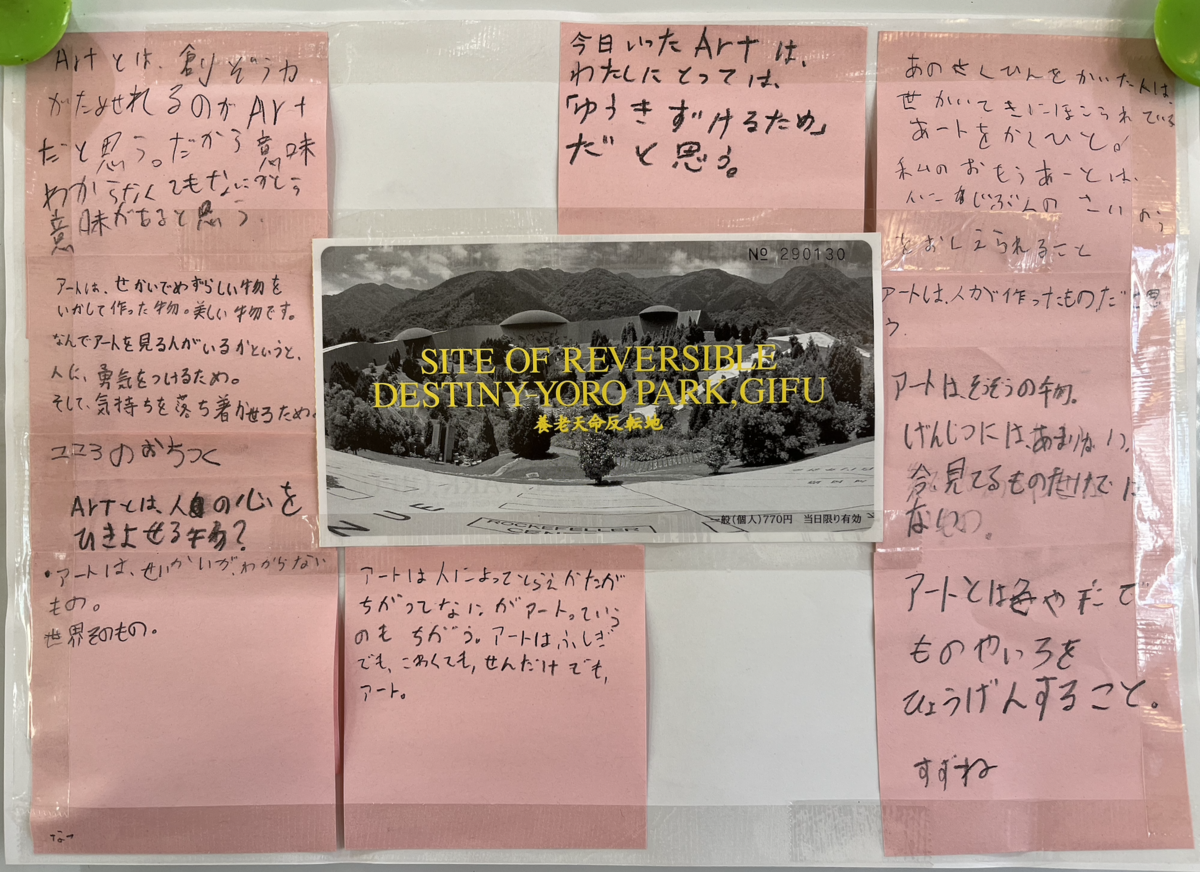 Artとは、創ぞう力
がためせれるのがArt
だと思う。だから意味
わからなくてもなにかしら
意味があると思う。
アートは、せかいでめずらしい物を
いかして作った物。美しい物です。
なんでアートを見る人がいるかというと、
人に、勇気をつけるため。
そして、気持ちを落ち着かせるため。
ココろのおちつく
Artとは、人の心を
ひきよせる物?
・アートは、せいかいが、わからない
もの。
世界そのもの。
なつ
今日いったArtは、
わたしにとっては、
「ゆうきずけるため」
だと思う。
No 290130
SITE OF REVERSIBLE
DESTINY-YORO PARK, GIFU
養老天命反転地
NUE
ROCKEFELLER
CENTER
一般(個人)770円 当日限り有効
アートは人によってとらえかたが
ちがってなにがアートっていう
のも ちがう。アートはふしぎ
でも、こわくても、せんだけでも、
アート。
あのさくひんをかいた人は、
せかいてきにほこられている
あートをかくひと。
私のおもうあーとは、
じぶんのさいのう
をおしえられること
アートは、人が作ったものだと思
う。
アートはそぞうの物。
げんじつにはあまりない。
今見てるものだけでは
ないもの。
アートとは色や形で
ものやいろを
ひょうげんすること。
すずね